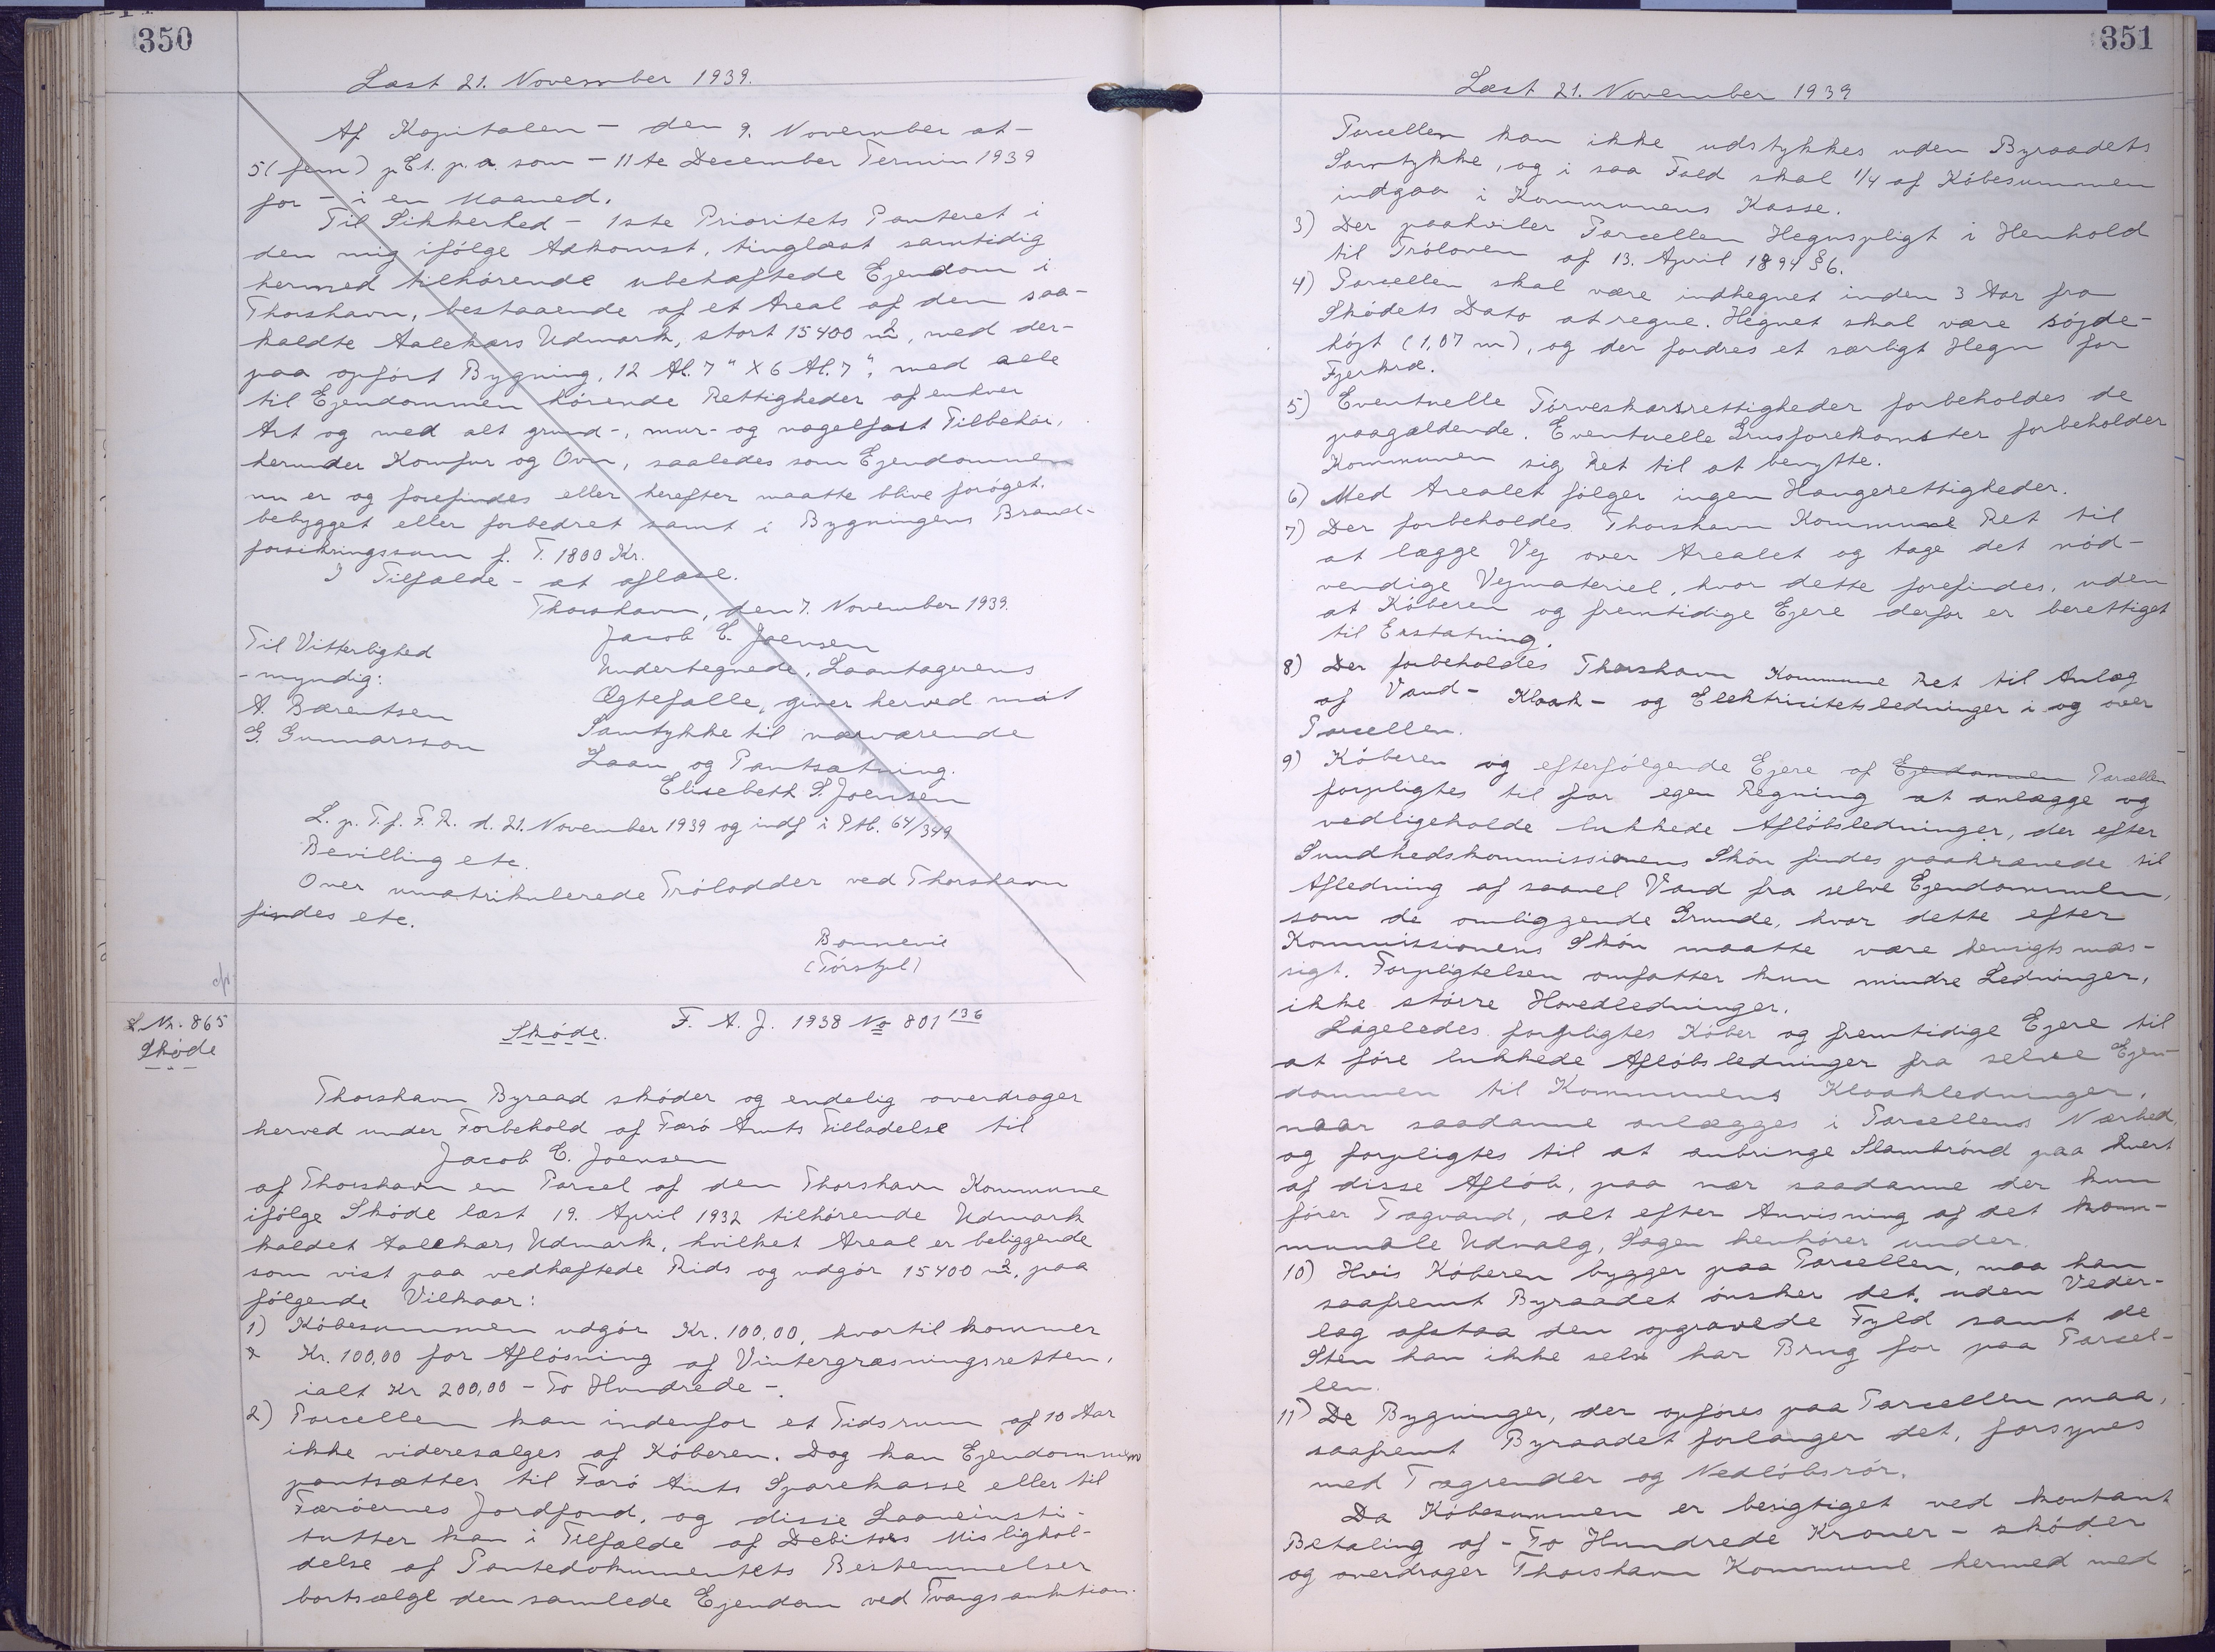 350
Læst 21. November 1939.
Af Kapitalen - den 9. November at -
5 (fem) pCt. p. a. som - 11te December Termin 1939
for - i en Maaned.
Til Sikkerhed - 1ste Prioritets Panteret i
den mig ifølge Adkomst, tinglæst samtidig
hermed tilhørende ubehæftede Ejendom i
Thorshavn, bestaaende af et Areal af den saa-
kaldte Aalekærs Udmark, stort 15400 m2, med der-
paa opført Bygning, 12 Al. 7" X 6 Al. 7", med alle
til Ejendommen hørende Rettigheder af enhver
Art og med alt grund-, mur- og nagelfast Tilbehør,
herunder Komfur og Ovn, saaledes som Ejendommen
nu er og forefindes eller herefter maatte blive forøget.
bebygget eller forbedret samt i Bygningens Brand-
forsikringssum p. T. 1800 Kr.
I Tilfælde - at aflæse.
Thorshavn, den 7. November 1939.
Jacob E. Joensen
Til Vitterlighed
- myndig:
A. Bærentsen
G. Gunnarsson
Undertegnede, Laantagerens
Ægtefælle, giver herved mit
Samtykke til nærværende
Laan og Pantsætning.
Elisebeth S. Joensen
L. p. T. f. F. R. d. 21. November 1939 og indf i Ptb. 64/349
Bevilling etc.
Over umatrikulerede Trølodder ved Thorshavn
findes etc.
Bonnevie
(Tórstpl)
L. Nr. 865
Skøde
Skøde. F. A. J. 1938 No 801 136
Thorshavn Byraad skøder og endelig overdrager
herved under Forbehold af Færø Amts Tilladelse til
Jacob E. Joensen
af Thorshavn en Parcel af den Thorshavn Kommune
ifølge Skøde læst 19. April 1932 tilhørende Udmark
kaldet Aalekærs Udmark, hvilket Areal er beliggende
som vist paa vedhæftede Rids og udgør 15400 m2, paa
følgende Vilkaar:
1) Købesummen udgør Kr. 100,00, hvortil kommer
Kr. 100,00 for Afløsning af Vintergræsningsretten,
ialt Kr 200,00 - To Hundrede -.
2) Parcellen kan indenfor et Tidsrum af 10 Aar
ikke videresælges af Køberen. Dog kan Ejendommen
pantsættes til Færø Amts Sparekasse eller til
Færøernes Jordfond, og disse Laaneinsti-
tutter kan i Tilfælde af Debitors Mislighol-
delse af Pantedokumentets Bestemmelser
bortsælge den samlede Ejendom ved Tvangsauktion.
351
Læst 21. November 1939
Parcellen kan ikke udstykkes uden Byraadets
Samtykke, og i saa Fald skal 1/4 af Købesummen
indgaa i Kommunens Kasse.
3) Der paahviler Parcellen Hegnspligt i Henhold
til Trøloven af 13. April 1894 § 6.
4) Parcellen skal være indhegnet inden 3 Aar fra
Skødets Dato at regne. Hegnet skal være højde-
højt (1,07 m), og der fordres et særligt Hegn for
Fjerkræ.
5) Eventuelle Tørveskærsrettigheder forbeholdes de
paagældende. Eventuelle Grusforekomster forbeholder
Kommunen sig Ret til at benytte.
6) Med Arealet følger ingen Haugerettigheder.
7) Der forbeholdes Thorshavn Kommune Ret til
at lægge Vej over Arealet og tage det nød-
vendige Vejmateriel, hvor dette forefindes, uden
at Køberen og fremtidige Ejere derfor er berettiget
til Erstatning.
8) Der forbeholdes Thorshavn Kommune Ret til Anlæg
af Vand- Kloak- og Elektricitetsledninger i og over
Parcellen.
9) Køberen og efterfølgende Ejere af Ejendommen Parcellen
forpligtes til for egen Regning at anlægge og
vedligeholde lukkede Afløbsledninger, der efter
Sundhedskommissionens Skøn findes paakrævede til
Afledning af saavel Vand fra selve Ejendommen,
som de omliggende Grunde, hvor dette efter
Kommissionens Skøn maatte være hensigtsmæs-
sigt. Forpligtelsen omfatter kun mindre Ledninger,
ikke større Hovedledninger.
Ligeledes forpligtes Køber og fremtidige Ejere til
at føre lukkede Afløbsledninger fra selve Ejen-
dommen til Kommunens Kloakledninger,
naar saadanne anlægges i Parcellens Nærhed,
og forpligtes til at anbringe Slambrønd paa hvert
af disse Afløb, paa nær saadanne der kun
fører Tagvand, alt efter Anvisning af det kom-
munale Udvalg, Sagen henhører under.
10) Hvis Køberen bygger paa Parcellen, maa han
saafremt Byraadet ønsker det, uden Veder-
lag afstaa den opgravede Fyld samt de
Sten han ikke selv har Brug for paa Parcel-
len.
11) De Bygninger, der opføres paa Parcellen maa,
saafremt Byraadet forlanger det, forsynes
med Tagrender og Nedløbsrør.
Da Købesummen er berigtiget ved kontant
Betaling af - To Hundrede Kroner - skøder
og overdrager Thorshavn Kommune hermed med